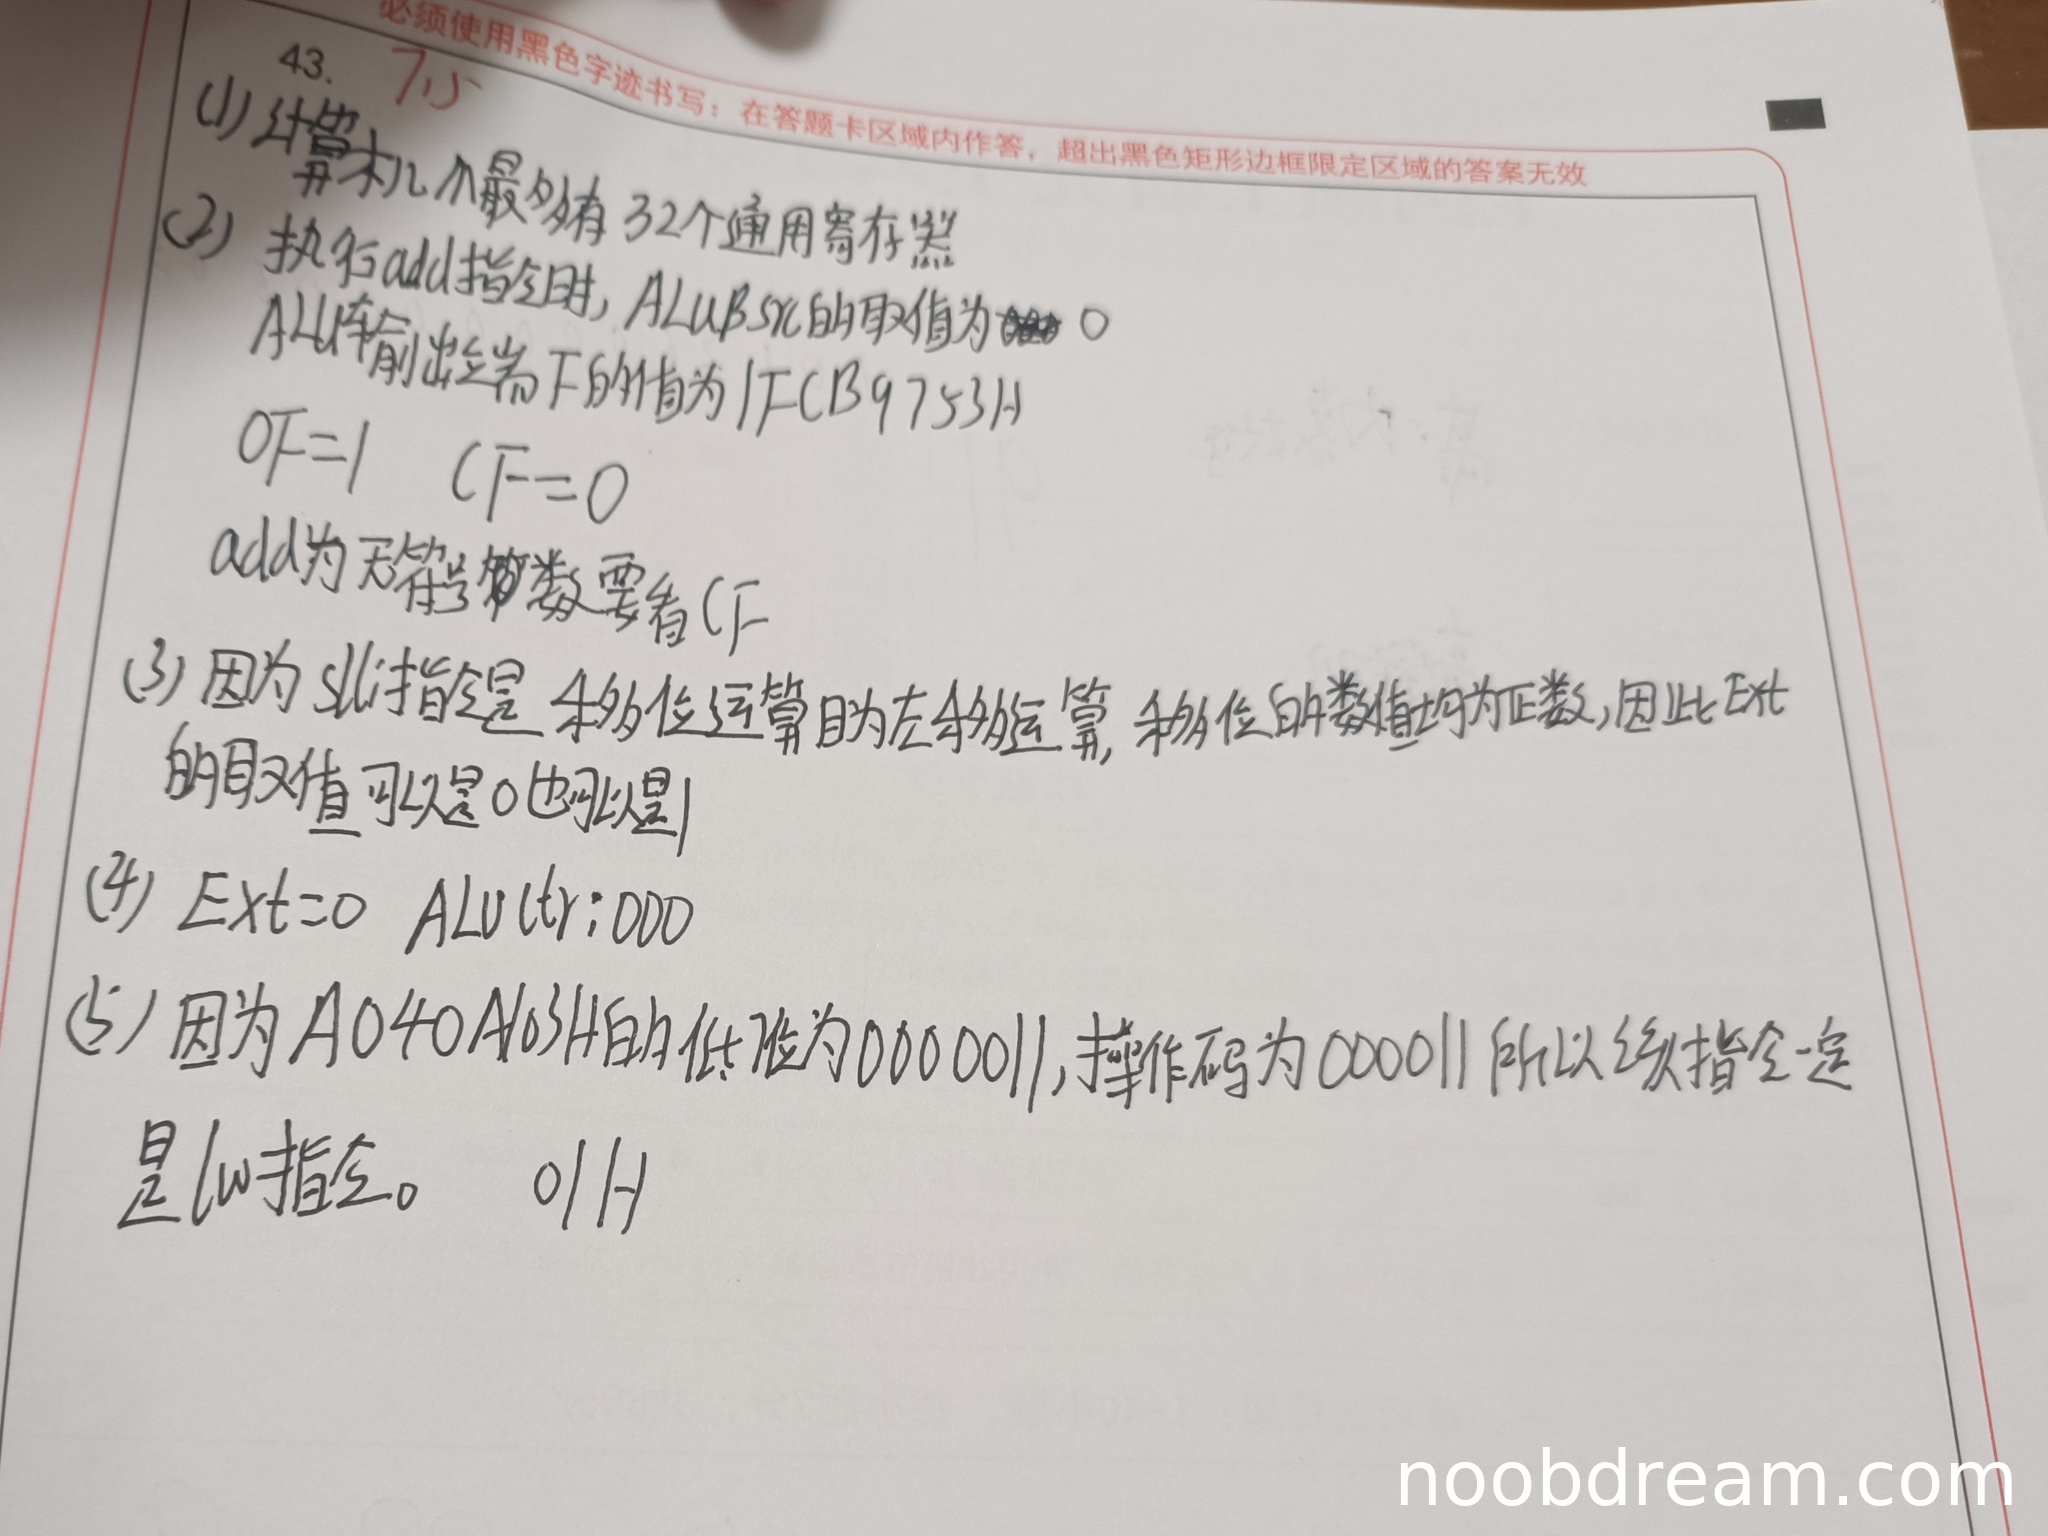 必须使用黑色字迹书写：在答题卡区域内作答，超出黑色矩形边框限定区域的答案无效
43. 7分
(1) 计算机 最多有 32个通用寄存器
(2) 执行add指令时, ALUBsrc的取值为 0
ALU输出端F的值为 1FCB9753H
OF=1 CF=0
add为无符号数要看CF
(3) 因为slli指令是 移位运算且为左移运算, 移位的数值均为正数, 因此Ext
的取值可以是0也可以是1
(4) Ext=0 ALUctr:000
(5) 因为A040A103H的低7位为0000011, 操作码为000011所以该指令一定
是lw指令。 01H
noobdream.com